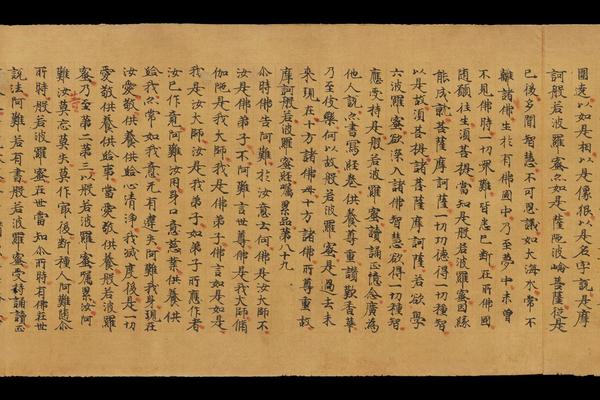 圍遶以如是相以是像㒵以是名字說是摩
訶般若波羅蜜尒如是薩陁波崘菩薩從是
已後多聞智慧不可思議如大海水常不
離諸佛生於有佛國中乃至夢中未曾
不見佛時一切眾難皆悉已斷在所佛國
隨願往生須菩提當知是般若波羅蜜因緣
能成就菩薩摩訶薩一切功德得一切種智
以是故須菩提諸菩薩摩訶薩若欲學
六波羅蜜欲深入諸佛智慧欲得一切種智
應受持是般若波羅蜜讀誦正憶念廣為
他人說尒書寫經卷供養尊重讚歎香華
乃至伎樂何以故般若波羅蜜是過去未
來現在十方諸佛母十方諸佛所尊重故
摩訶般若波羅蜜經囑累品第八十九
尒時佛告阿難於汝意云何佛是汝大師不
汝是佛弟子不阿難言世尊佛是我大師脩
伽陁是我大師我是佛弟子佛言如是如是
我是汝大師汝是我弟子如弟子所應作者
汝已作竟阿難汝用身口意慈業供養供
給我尒常如我意无有違失阿難我身現在
汝愛敬供養供給心清淨我滅度後是一切
愛敬供養供給事當愛敬供養般若波羅
蜜乃至第二第三以般若波羅蜜囑累汝阿
難汝莫忘莫失莫作寂後斷種人阿難隨尒
所時般若波羅蜜在世當知尒所時有佛在世
說法阿難若有書般若波羅蜜受持誦讀正